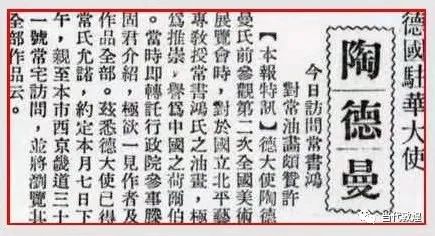 德國駐華大使
陶德曼
今日訪問常書鴻
對常油畫頗贊許
【本報特訊】德大使陶德
曼氏前參觀第二次全國美術
展覽會時，對於國立北平藝
專敎授常書鴻氏之油畫，極
爲推崇，譽爲中國之荷爾伯
。當時即轉託行政院參事滕
固君介紹，極欲一見作者及
作品全部。茲悉德大使已得
常氏允諾，約定本月七日下
午，親至本市西京畿道三十
一號常宅訪問，並將瀏覽其
全部作品云。
当代敦煌